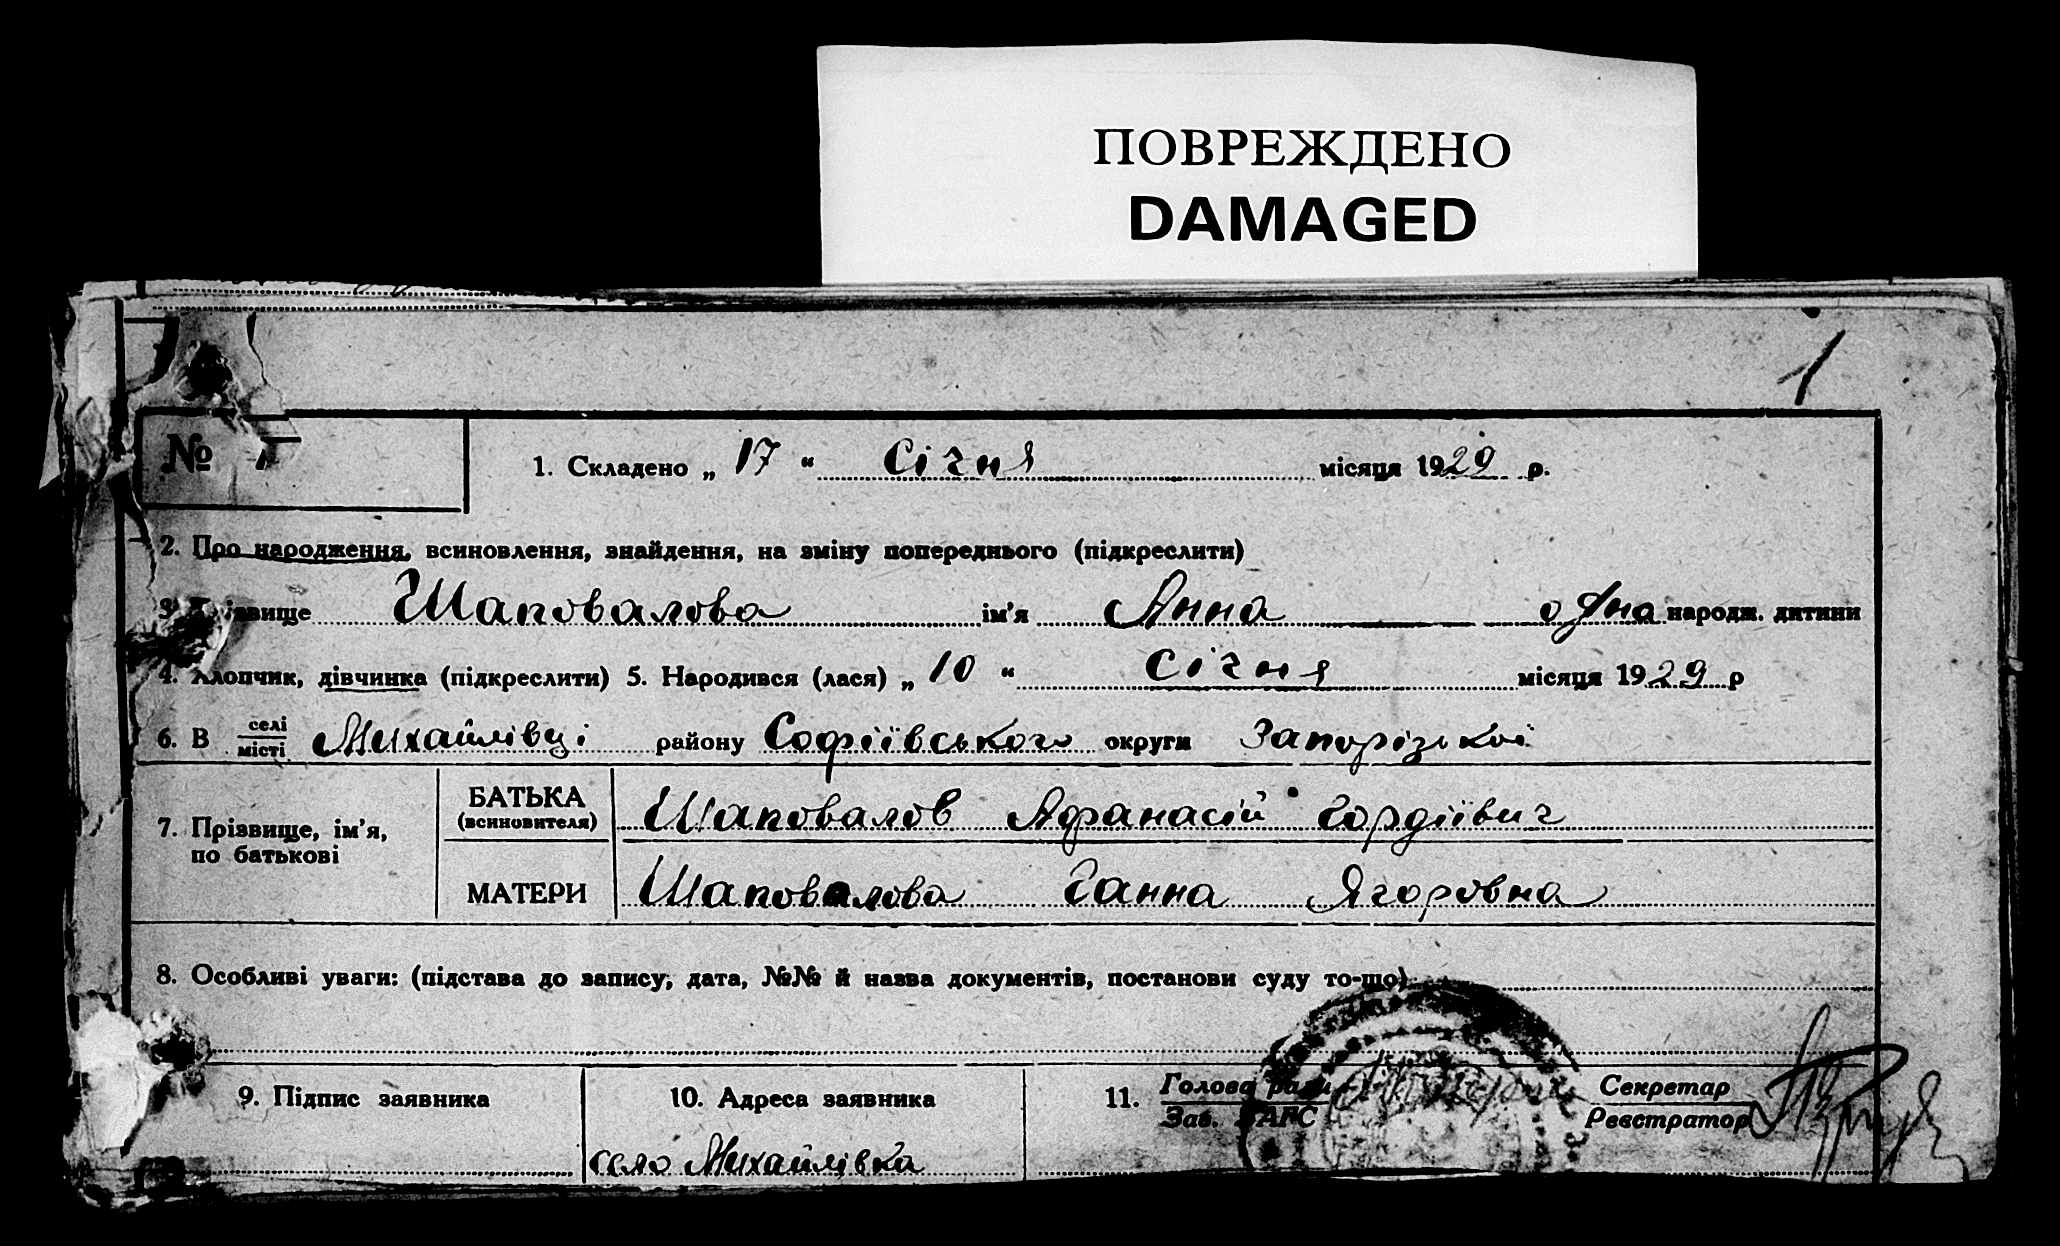 ПОВРЕЖДЕНО
DAMAGED
1
№
1. Складено „ 17 “ Січня місяця 1929 р.
2. Про народження, всиновлення, знайдення, на зміну попереднього (підкреслити)
3. Прізвище Шаповалова ім'я Анна одна народж. дитини
4. Хлопчик, дівчинка (підкреслити) 5. Народився (лася) „ 10 “ Січня місяця 1929 р
6. В селі Михайлівці району Софіївського округи Запорізької
місті
7. Прізвище, ім'я, по батькові
БАТЬКА (всиновителя) Шаповалов Афанасій Гордіївич
МАТЕРИ Шаповалова Ганна Ягоровна
8. Особливі уваги: (підстава до запису, дата, №№ й назва документів, постанови суду то-що)
9. Підпис заявника
10. Адреса заявника
село Михайлівка
11. Голова ради Секретар
Зав. ЗАГС Реєстратор